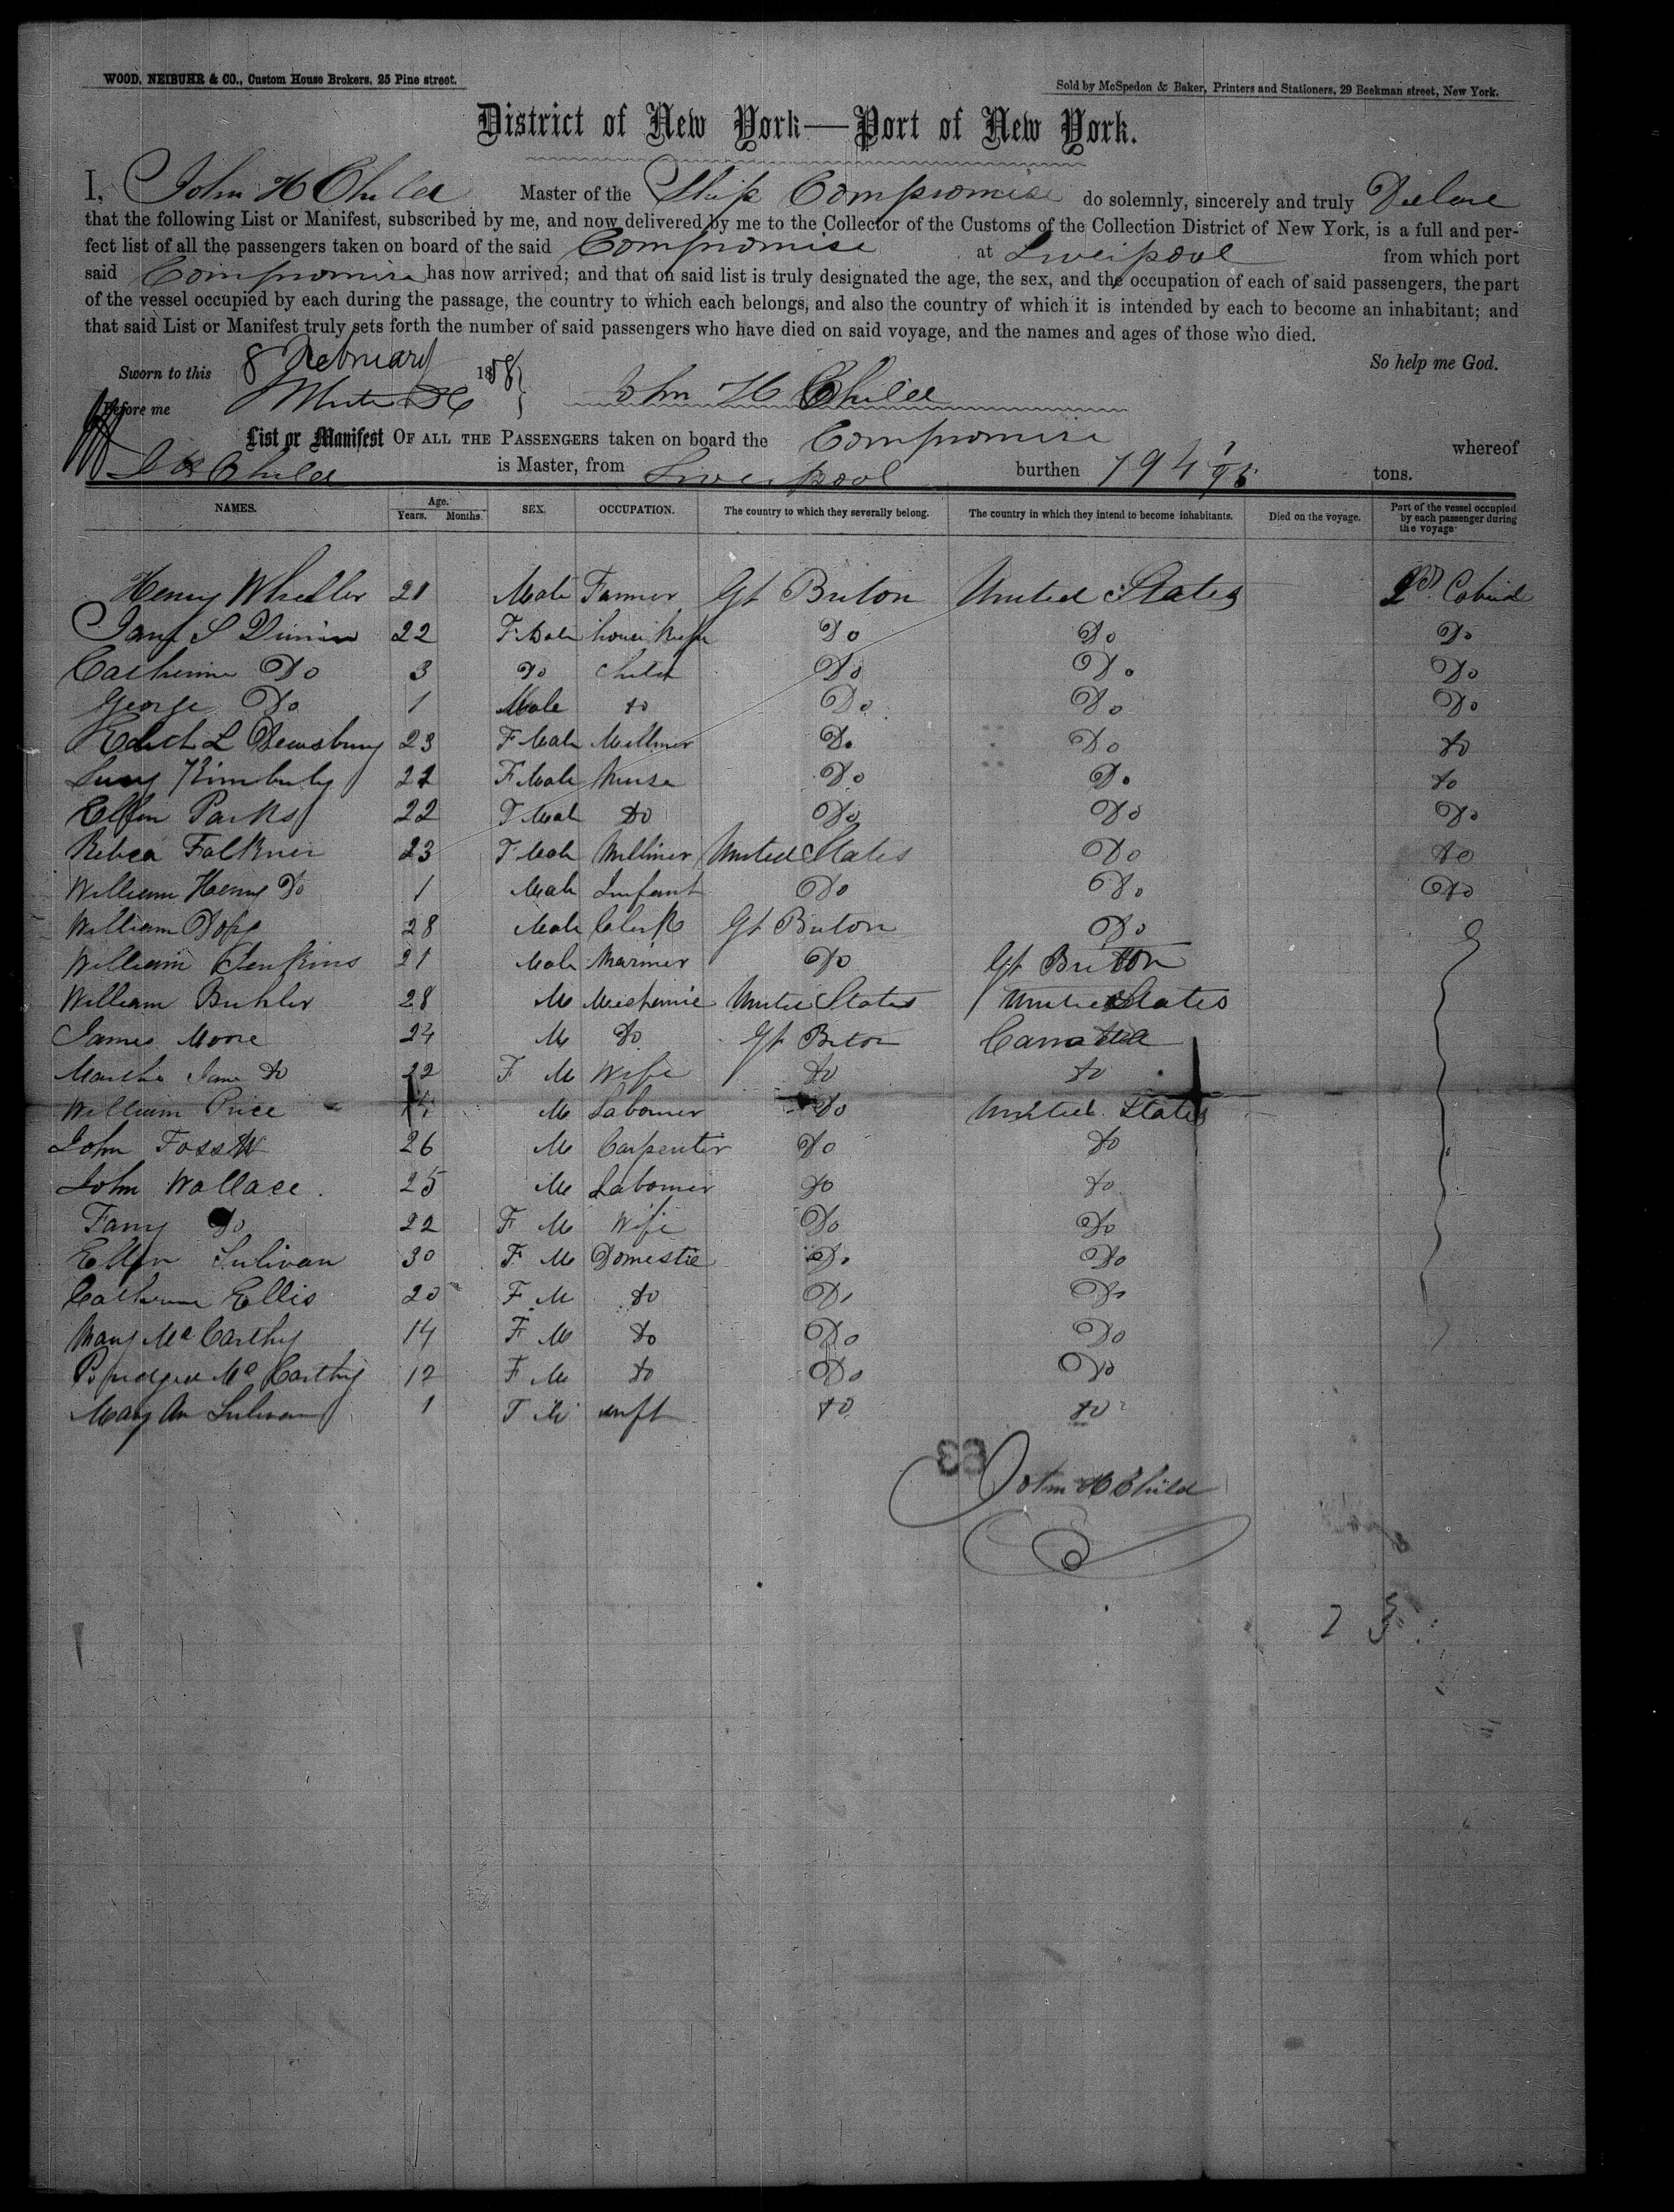 WOOD, NEIBUHR & CO., Custom House Brokers, 25 Pine street.
Sold by McSpedon & Baker, Printers and Stationers, 29 Beekman street, New York.
District of New York—Port of New York.
I, John H Child Master of the Ship Compromise do solemnly, sincerely and truly Declare
that the following List or Manifest, subscribed by me, and now delivered by me to the Collector of the Customs of the Collection District of New York, is a full and per-
fect list of all the passengers taken on board of the said Compromise at Liverpool from which port
said Compromise has now arrived; and that on said list is truly designated the age, the sex, and the occupation of each of said passengers, the part
of the vessel occupied by each during the passage, the country to which each belongs, and also the country of which it is intended by each to become an inhabitant; and
that said List or Manifest truly sets forth the number of said passengers who have died on said voyage, and the names and ages of those who died.
So help me God.
Sworn to this 8 February 1858
Before me John H Child
List or Manifest OF ALL THE PASSENGERS taken on board the Compromise whereof
J H Child is Master, from Liverpool burthen 794 tons.
NAMES. Age. Years. Months. SEX. OCCUPATION. The country to which they severally belong. The country in which they intend to become inhabitants. Died on the voyage. Part of the vessel occupied by each passenger during the voyage
Henry Wheeler 21 Male Farmer Gt Briton United States 2d Cabin
Jane S 22 F Male house keeper Do Do Do
Catherine Do 3 Do Child Do Do Do
George Do 1 Male Do Do Do Do
Edith L Dewsbury 23 F Male Milliner Do Do Do
Lucy Kimberly 22 F Male Nurse Do Do Do
Ellen Parks 22 F Male Do Do Do Do
Rebeca Falkner 23 F Male Milliner United States Do Do
William Henry Do 1 Male Infant Do Do Do
William 28 Male Clerk Gt Briton Do
William Jenkins 21 Male Mariner Do Gt Briton
William Buhler 28 M Mechanic United States United States
James Moore 24 M Do Gt Briton Canada
Martha Jane Do 22 F M Wife Do Do
William Price M Labourer Do United States
John 26 M Carpenter Do Do
John Wallace 25 M Labourer Do Do
Fany Do 22 F M Wife Do Do
Ellen Sulivan 30 F M Domestic Do Do
Catherine Ellis 20 F M Do Do Do
Mary Mc Carthy 14 F M Do Do Do
Bridget Mc Carthy 12 F M Do Do Do
Mary An Sulivan 1 F M inft Do Do
63
John H Child